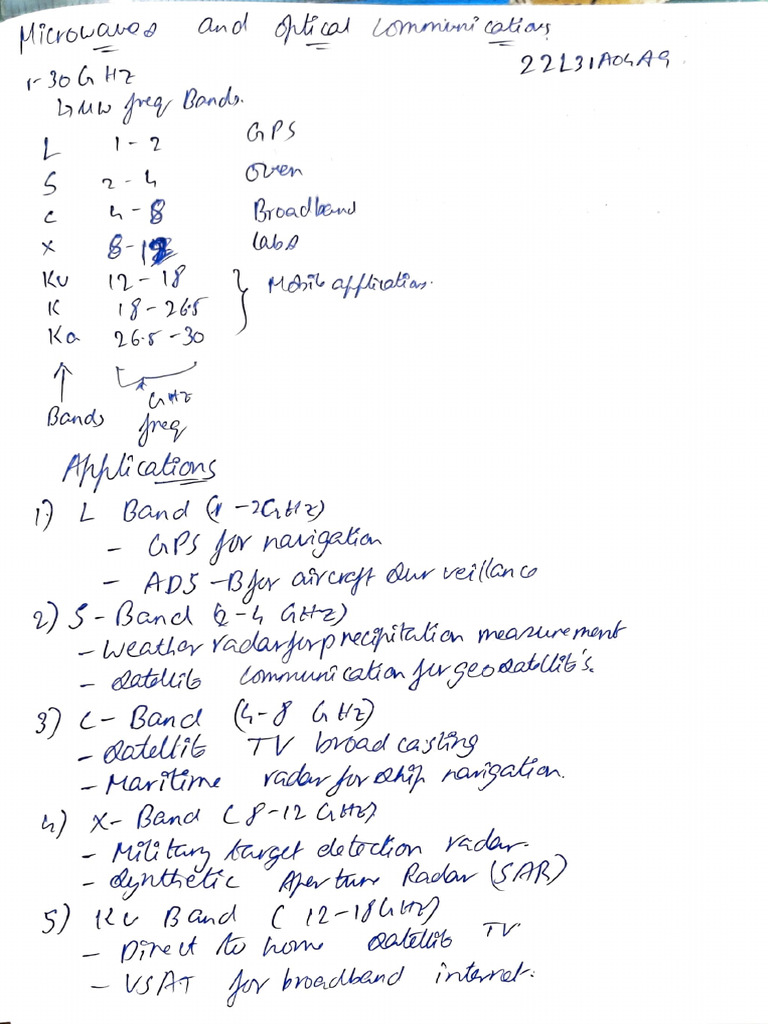 Microwaves and Optical Communications
22L31A04A9
1-30 GHz
↳ MW freq Bands.
L 1-2 GPS
S 2-4 Oven
C 4-8 Broadband
X 8-12 Labs
Ku 12-18
K 18-26.5 } Mobile applications.
Ka 26.5-30
↑ GHz
Bands freq
Applications
1) L Band (1-2GHz)
- GPS for navigation
- ADS-B for aircraft surveillance
2) S-Band (2-4 GHz)
- Weather radar for precipitation measurement
- Satellite communication for geosatellite's.
3) C-Band (4-8 GHz)
- Satellite TV broadcasting
- Maritime radar for ship navigation.
4) X-Band (8-12 GHz)
- Military target detection radar.
- Synthetic Aperture Radar (SAR)
5) Ku Band (12-18GHz)
- Direct to home Satellite TV
- VSAT for broadband internet.